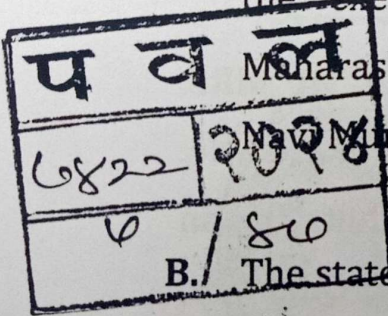 प व ल Maharas
७४२२ २०२४ Navi Mu
/ ४७
B. The state